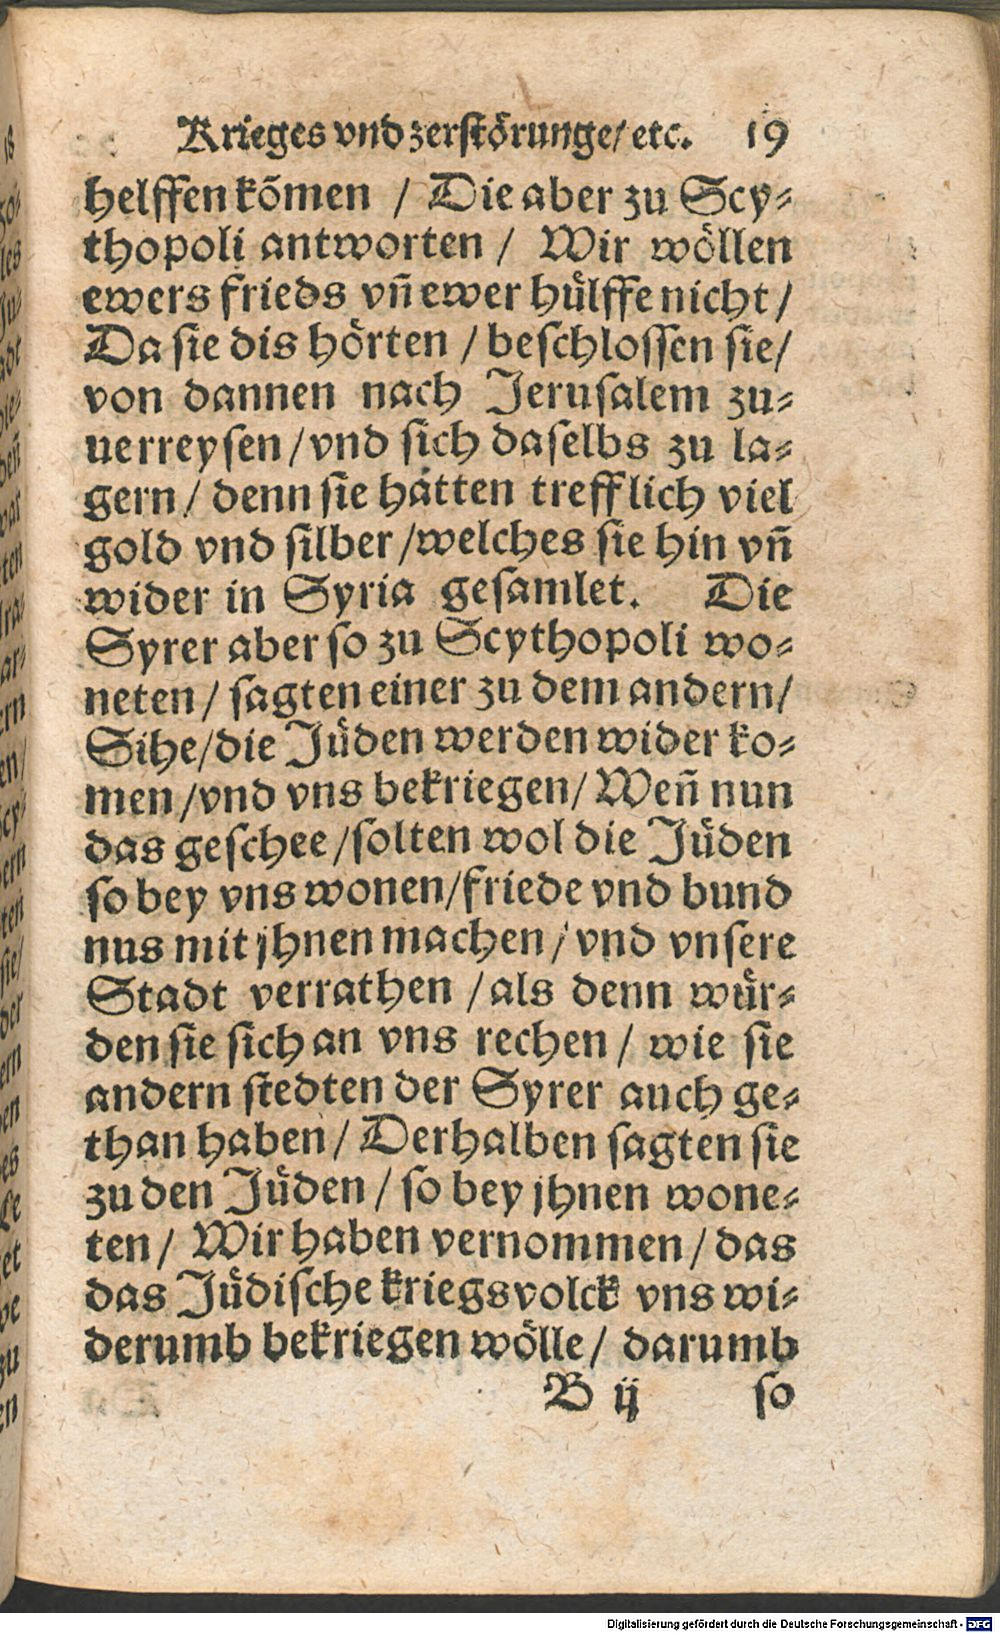 Krieges vnd zerstörunge/ etc. 19
helffen kõmen / Die aber zu Scy⸗
thopoli antworten / Wir wöllen
ewers frieds vñ ewer hülffe nicht /
Da sie dis hörten / beschlossen sie/
von dannen nach Jerusalem zu⸗
uerreysen / vnd sich daselbs zu la⸗
gern / denn sie hätten trefflich viel
gold vnd silber / welches sie hin vñ
wider in Syria gesamlet. Die
Syrer aber so zu Scythopoli wo⸗
neten / sagten einer zu dem andern/
Sihe/die Jüden werden wider ko⸗
men /vnd vns bekriegen/ Weñ nun
das geschee /solten wol die Jüden
so bey vns wonen/friede vnd bund
nus mit jhnen machen / vnd vnsere
Stadt verrathen / als denn wür⸗
den sie sich an vns rechen / wie sie
andern stedten der Syrer auch ge⸗
than haben / Derhalben sagten sie
zu den Jüden / so bey jhnen wone⸗
ten / Wir haben vernommen / das
das Jüdische kriegsvolck vns wi⸗
derumb bekriegen wölle / darumb
B ij so
Digitalisierung gefördert durch die Deutsche Forschungsgemeinschaft - DFG